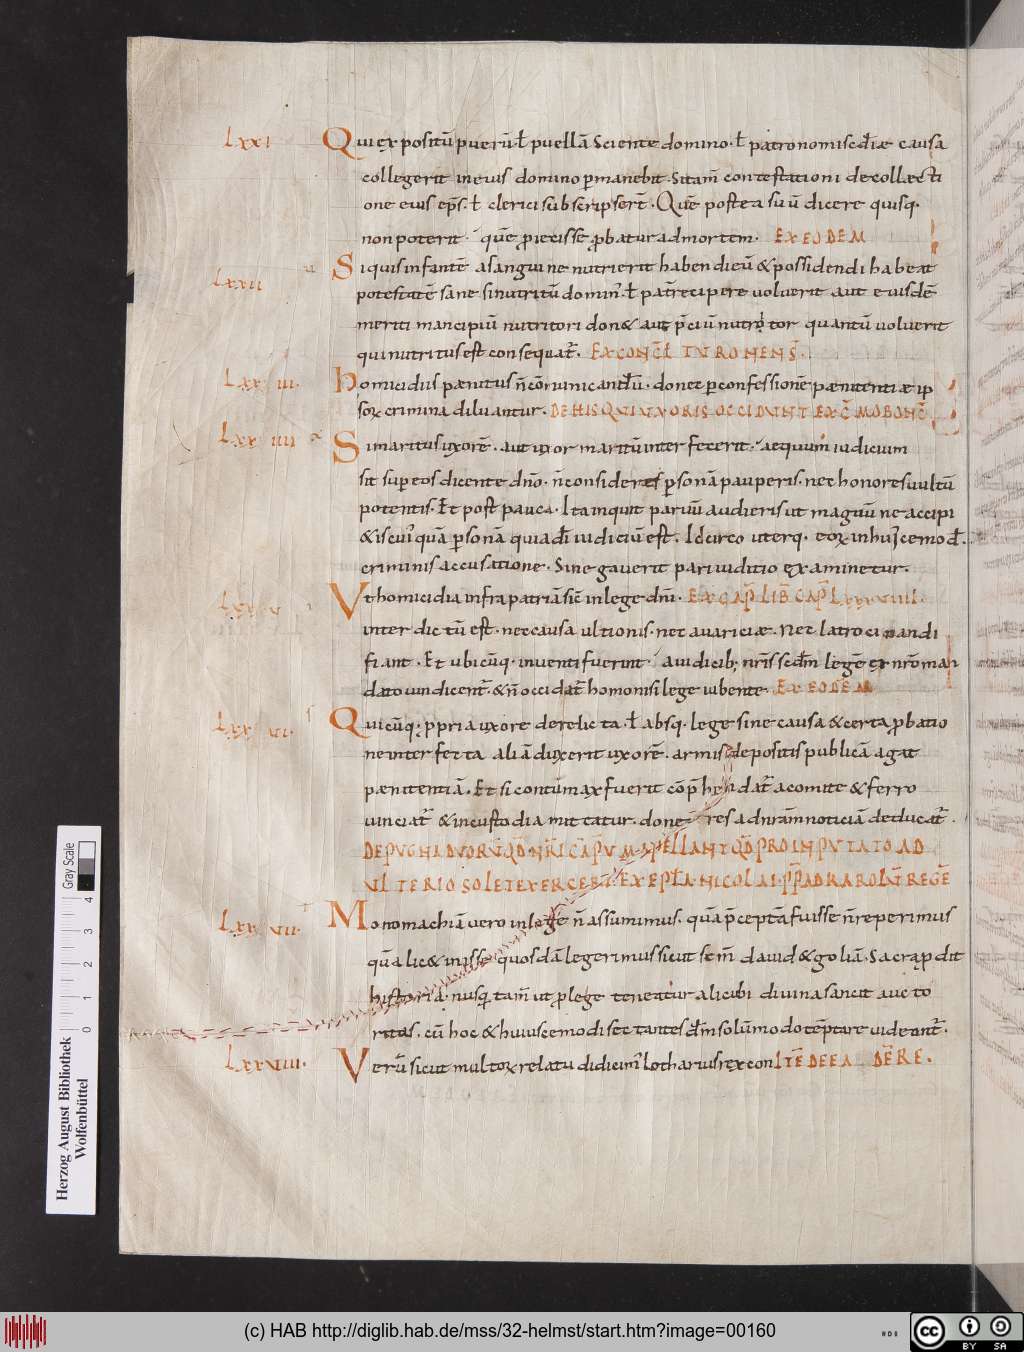 Lxxi Qui expositū puerū ł puellā Sciente domino · ł patronomiscđiæ causa
collegerit ineius domino pmanebit · Sitam̄ contestationi decollæcti
one eius ep̄s · ł clerici subscripser̄t · Quē postea suū dicere quisq·
non poterit · quē p̄iecisse p̄batur ad mortem · EX EODEM
Lxxii Siquis infantē a sanguine nutrierit habendieū & possidendi habeat
potestatē sane si nutritū domin̄ ł pat̄ recipere voluerit aut eiusdē
meriti mancipiū nutritori don& aut p̄ciū nutritor quantū voluerit
qui nutritus est consequat̄ · EX CONCŁ TURONENS̄ ·
Lxx iii · Homicidiis pænitus n̄ cōmunicandū · donec p confessionē pænitentiæ ip
soꝝ crimina diluantur · DE HIS QUI UXORIS OCCIDUNT EX C̄ MOBONC̄
Lxx iiii Si maritus uxorē · aut uxor maritū interfecerit · aequum iudicium
sit super eos dicente dn̄o · n̄ consideres psonā pauperis · nec honores uultū
potentis · Et post pauca · Ita inquit paruū audieris ut magnū ne accipi
& iscui quā psonā quia dī iudiciū est · Idcirco uterq· eoꝝ in hui cemođ
criminis accusatione · Sinegauerit pari iuditio examinetur ·
Lxx v Ut homicidia infra patriā sic̄ in lege dn̄i · EX CAP̄ LIB̄ CAP̄ Lxxxviiii ·
interdictū est · nec causa ultionis · nec auariciæ · Nec latrocinandi
fiant · Et ubicūq· inuenti fuerint aiudicib; nr̄is scđm legē ex nr̄o man
dato uindicent̄ · & n̄ occidat̄ homo nisi lege iubente · EX EODEM
Lxx vi · Quicūq· ppria uxore derelicta · ł absq· lege sine causa & certa pbatio
ne interfecta aliā duxerit uxorē · armis depositis publicā agat
pænitentiā · Et si contūmax fuerit cōp̄hendat̄ a comite & ferro
uinciat̄ & incustodia mittatur · donec res ad nr̄am noticiā deducat̄ ·
DE PUGNA DUORŪ QD̄ NR̄I CĀPŪ M APELLANT QD̄ PRO INPUTATO AD
ULTERIO SOLET EXERCERI · EX EPŁA · NICOLAI · PP̄ AD RAROLŪ REGĒ
Lxx vii · Monomachiā vero in lege n̄ assumimus · quā p̄ceptā fuisse n̄ reperimus
quā lic& inisse quosdā legerimus sicut sc̄m dauid & goliā · Sacra pdit
historia · nusqȝ tam̄ ut p lege teneatur alicubi diuina sancit aucto
ritas · cū hoc & huiuscemodi sectantes dm̄ solūmodo tēptare uideant̄ ·
Lxxviii · Verū sicut multoꝝ relatu didicim̄ Lotharius rex con ITĒ DE EA DĒ RE ·
Gray Scale
0 1 2 3 4
Herzog August Bibliothek
Wolfenbüttel
(c) HAB http://diglib.hab.de/mss/32-helmst/start.htm?image=00160
cc BY SA